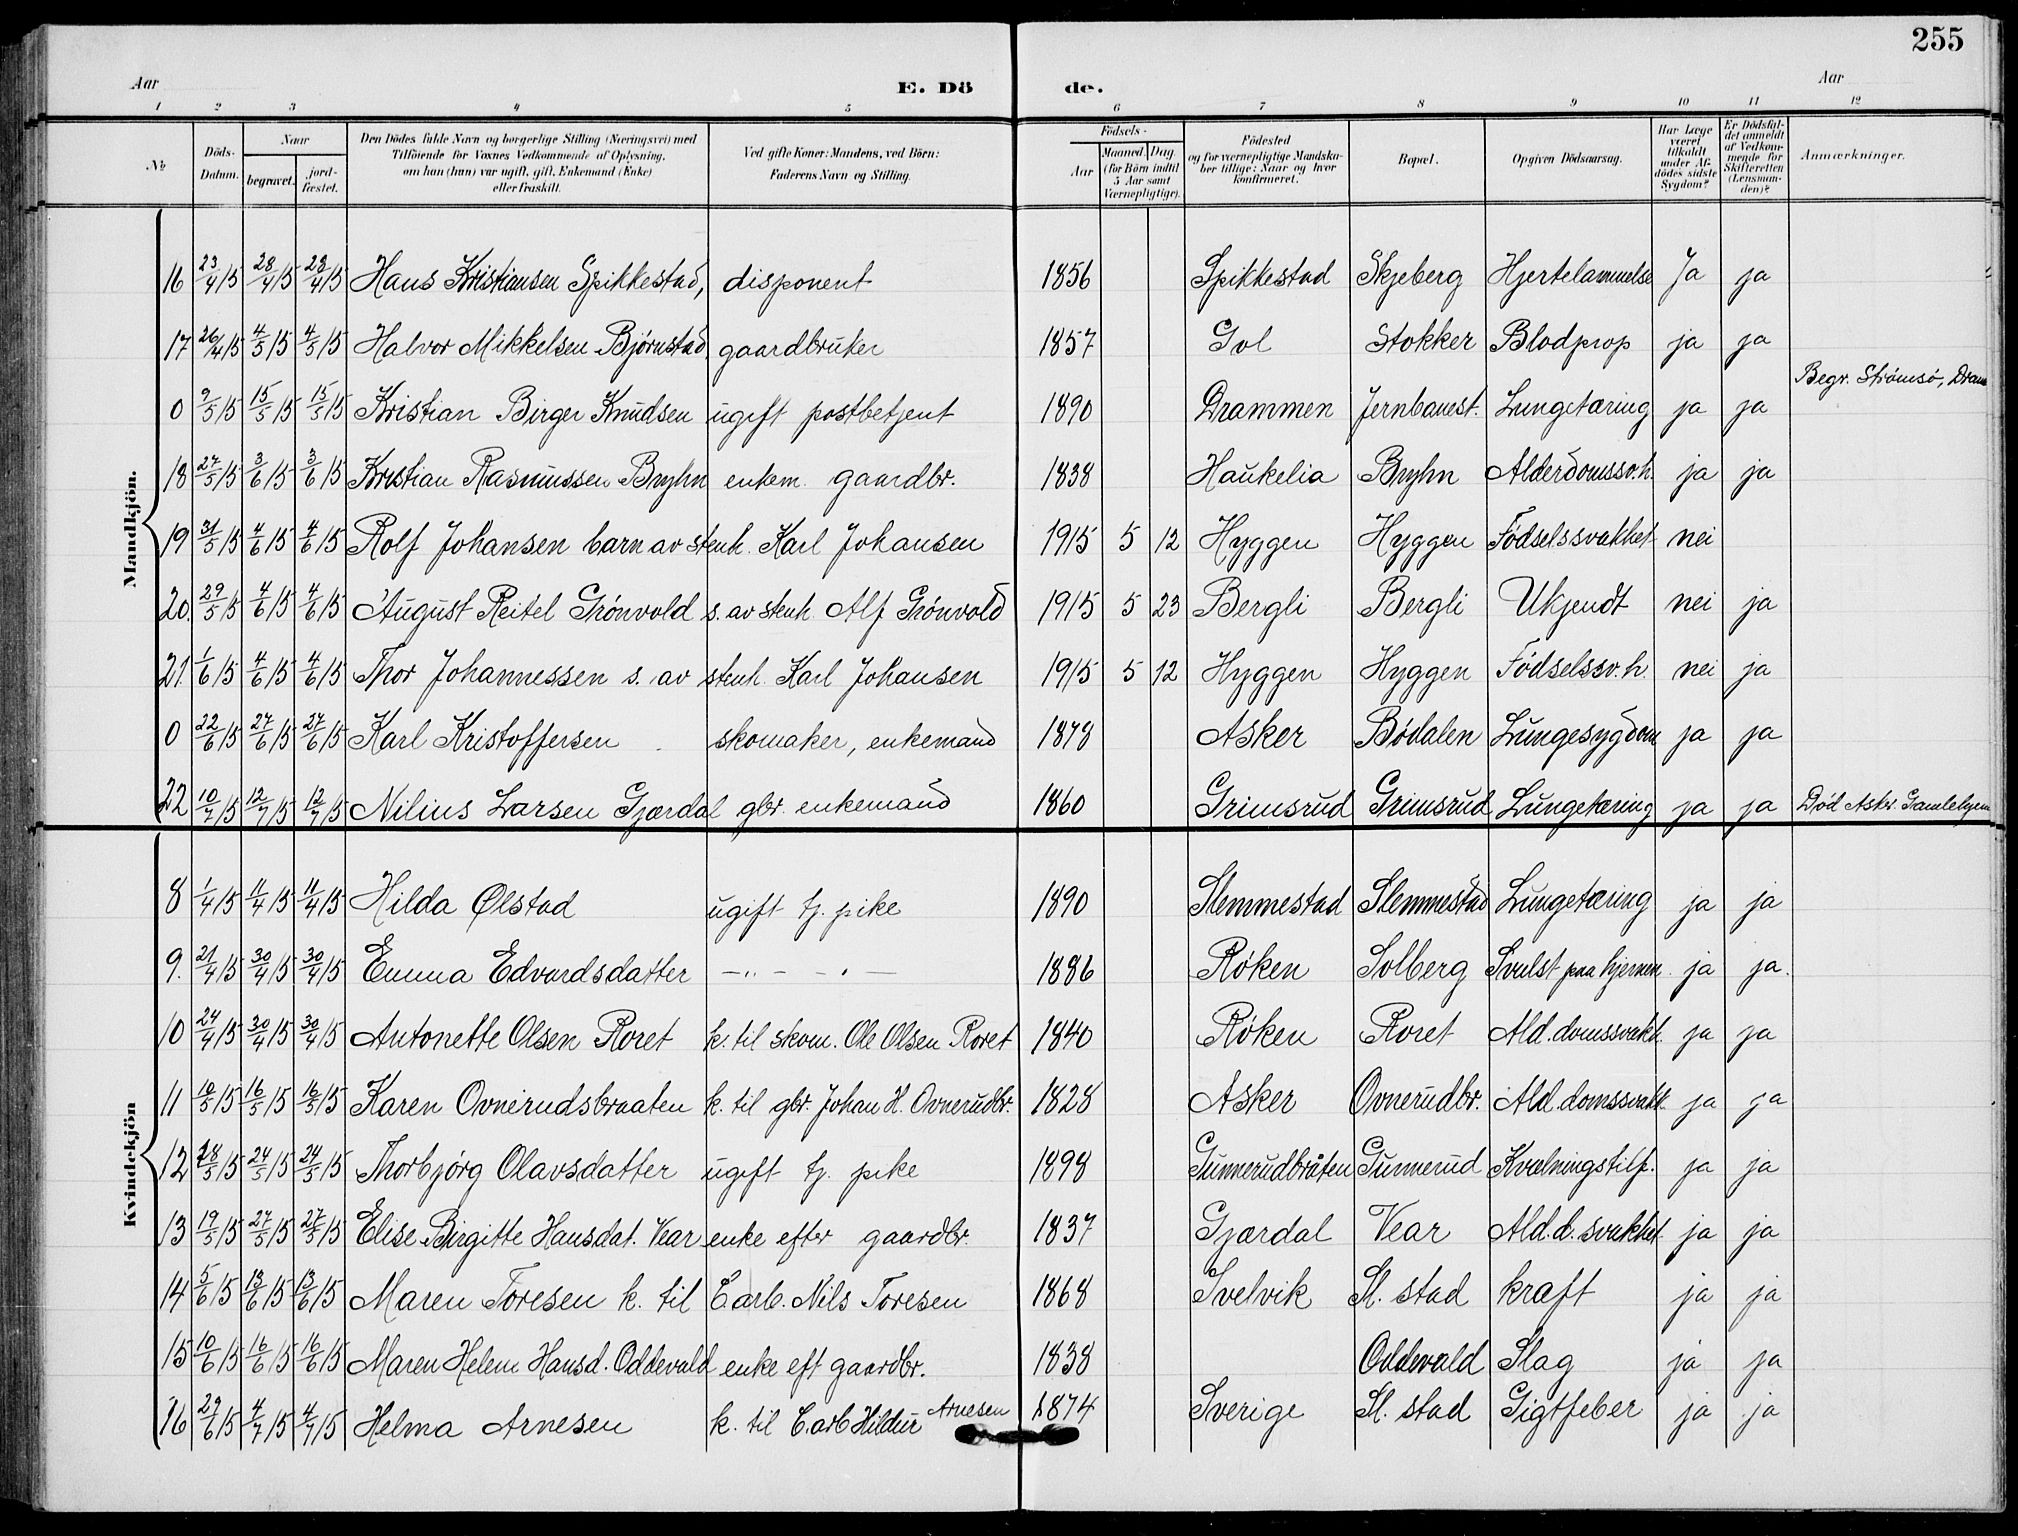 255
Aar
E. Dö
de.
Aar
1 2 3 4 5 6 7 8 9 10 11 12
No
Döds-Datum.
Naar
begravet.
jord-fæstet.
Den Dödes fulde Navn og borgerlige Stilling (Næringsvei) med
Tilföiende for Voxnes Vedkommende af Oplysning,
om han (hun) var ugift, gift, Enkemand (Enke)
eller fraskilt.
Ved gifte Koner: Mandens, ved Börn:
Faderens Navn og Stilling.
Födsels-
Aar
Maaned. Dag
(for Börn indtil
5 Aar samt
Værnepligtige).
Födested
og for værnepligtige Mandska-
ber tillige: Naar og hvor
konfirmeret.
Bopæl.
Opgiven Dödsaarsag.
Har Læge
været
tilkaldt
under Af-
dödes sidste
Sygdom?
Er Dödsfal-
det anmeldt
af Vedkom-
mende for
Skifteretten
(Lensman-
den)?
Anmærkninger.
Mandkjön.
16 23/4 15 28/4 15 28/4 15 Hans Kristiansen Spikkestad, disponent 1856 Spikkestad Skjeberg Hjertelammelse Ja ja
17 26/4 15 4/5 15 4/5 15 Halvor Mikkelsen Bjørnstad gaardbruker 1857 Gol Stokker Blodprop ja ja
Begr. Strømsø, Dram
0 9/5 15 15/5 15 15/5 15 Kristian Birger Knudsen ugift postbetjent 1890 Drammen Jernbanest. Lungetæring ja ja
18 27/5 15 3/6 15 3/6 15 Kristian Rasmussen Bryhn enkem. gaardbr. 1838 Haukelia Bryhn Alderdomssv.h. ja ja
19 31/5 15 4/6 15 4/6 15 Rolf Johansen barn av stenh. Karl Johansen 1915 5 12 Hyggen Hyggen Fødselssvakhet nei
20. 29/5 15 4/6 15 4/6 15 August Reitel Grønvold s. av stenh. Alf Grønvold 1915 5 23 Bergli Bergli Ukjendt nei ja
21 1/6 15 4/6 15 4/6 15 Thor Johannessen s. av stenh. Karl Johansen 1915 5 12 Hyggen Hyggen Fødselssv.h. nei ja
0 22/6 15 27/6 15 27/6 15 Karl Kristoffersen skomaker, enkemand 1878 Asker Bødalen Lungesygdom ja ja
22 10/7 15 12/7 15 12/7 15 Nilius Larsen Gjærdal gbr. enkemand 1860 Grimsrud Grimsrud Lungetæring ja ja Død Asker Gamlehjem
Kvindekjön
8 1/4 15 11/4 15 11/4 15 Hilda Ølstad ugift tj. pike 1890 Slemmestad Slemmestad Lungetæring ja ja
9. 21/4 15 30/4 15 30/4 15 Emma Edvardsdatter —„— — „ — 1886 Røken Solberg Svulst paa hjernen ja ja.
10 24/4 15 30/4 15 30/4 15 Antonette Olsen Roret k. til skom. Ole Olsen Roret 1840 Røken Roret Ald.domssvakh. ja ja
11 10/5 15 16/5 15 16/5 15 Karen Ovnerudsbraaten k. til gbr. Johan H. Ovnerudbr. 1828 Asker Ovnerudbr. Ald.domssvakh. ja ja
12 18/5 15 24/5 15 24/5 15 Thorbjørg Olavsdatter ugift tj. pike 1898 Gunnerudbråten Gunnerud Kvælningstilf. ja ja
13 19/5 15 27/5 15 27/5 15 Elise Birgitte Hansdat. Vear enke efter gaardbr. 1837 Gjærdal Vear Ald.d.svakhet ja ja
14 5/6 15 13/6 15 13/6 15 Maren Toresen k. til C.arb. Nils Toresen 1868 Svelvik Sl. stad kraft ja ja
15 10/6 15 16/6 15 16/6 15 Maren Helene Hansd. Oddevald enke eft gaardbr. 1838 Oddevald Slag ja ja
16 29/6 15 4/7 15 4/7 15 Helma Arnesen k. til C.arb Hildur Arnesen 1874 Sverige Sl. stad Gigtfeber ja ja